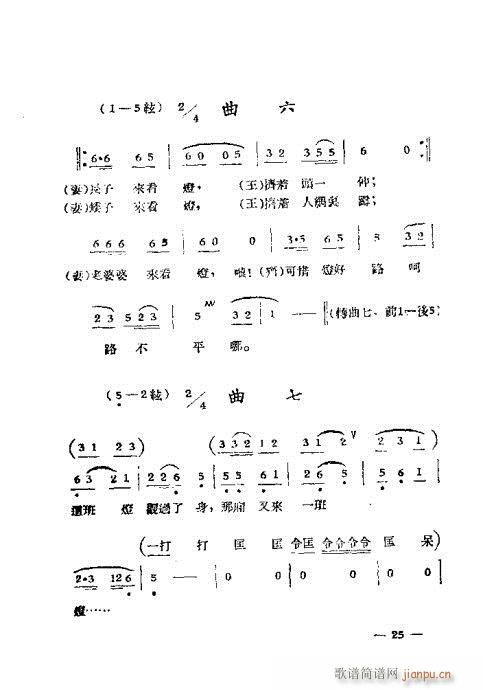 (1—5絃) 2/4 曲 六
6·6 6 5 | 6 0 0 5 | 3 2 3 5 5 | 6 0
(妻)長子 來看 燈， (王)擠着 頭一 伸；
(妻)矮子 來看 燈， (王)擠着 人
6 6 6 6 5 | 6 0 0 | 3·5 6 5 | 5 3 2
(妻)老婆婆 來看 燈， (齊)可惜 燈好 路 呵
2 3 5 2 3 | 5 3 2 | 1 — (轉曲七、前1—後5)
路 不 平哪。
(5—2絃) 2/4 曲 七
(3 1 2 3) (3 3 2 1 2 3 1 2 2 3 1)
6 3 2 1 | 2 2 6 5 | 5 5 6 1 | 2 6 5 | 5 6 1
這班 燈 觀過了 身，那廂 又來 一班
(一打 打 匡 匡 令匡 令令令令 匡 呆)
2·3 1 2 6 | 5 — | 0 0 | 0 0 | 0 0
燈……
— 25 —
歌谱简谱网
jianpu.cn